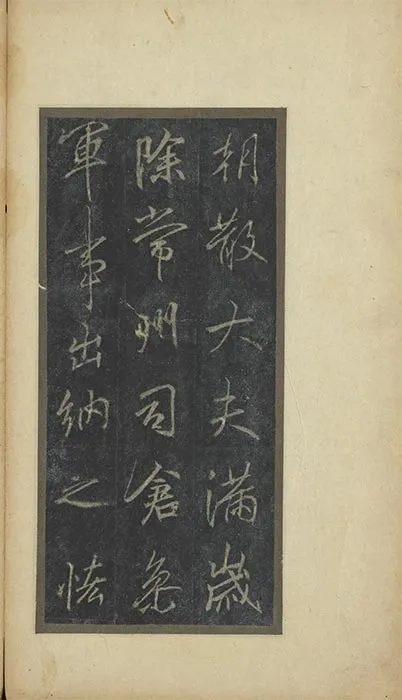 朝散大夫滿歲
除常州司倉參
軍事出納之恡